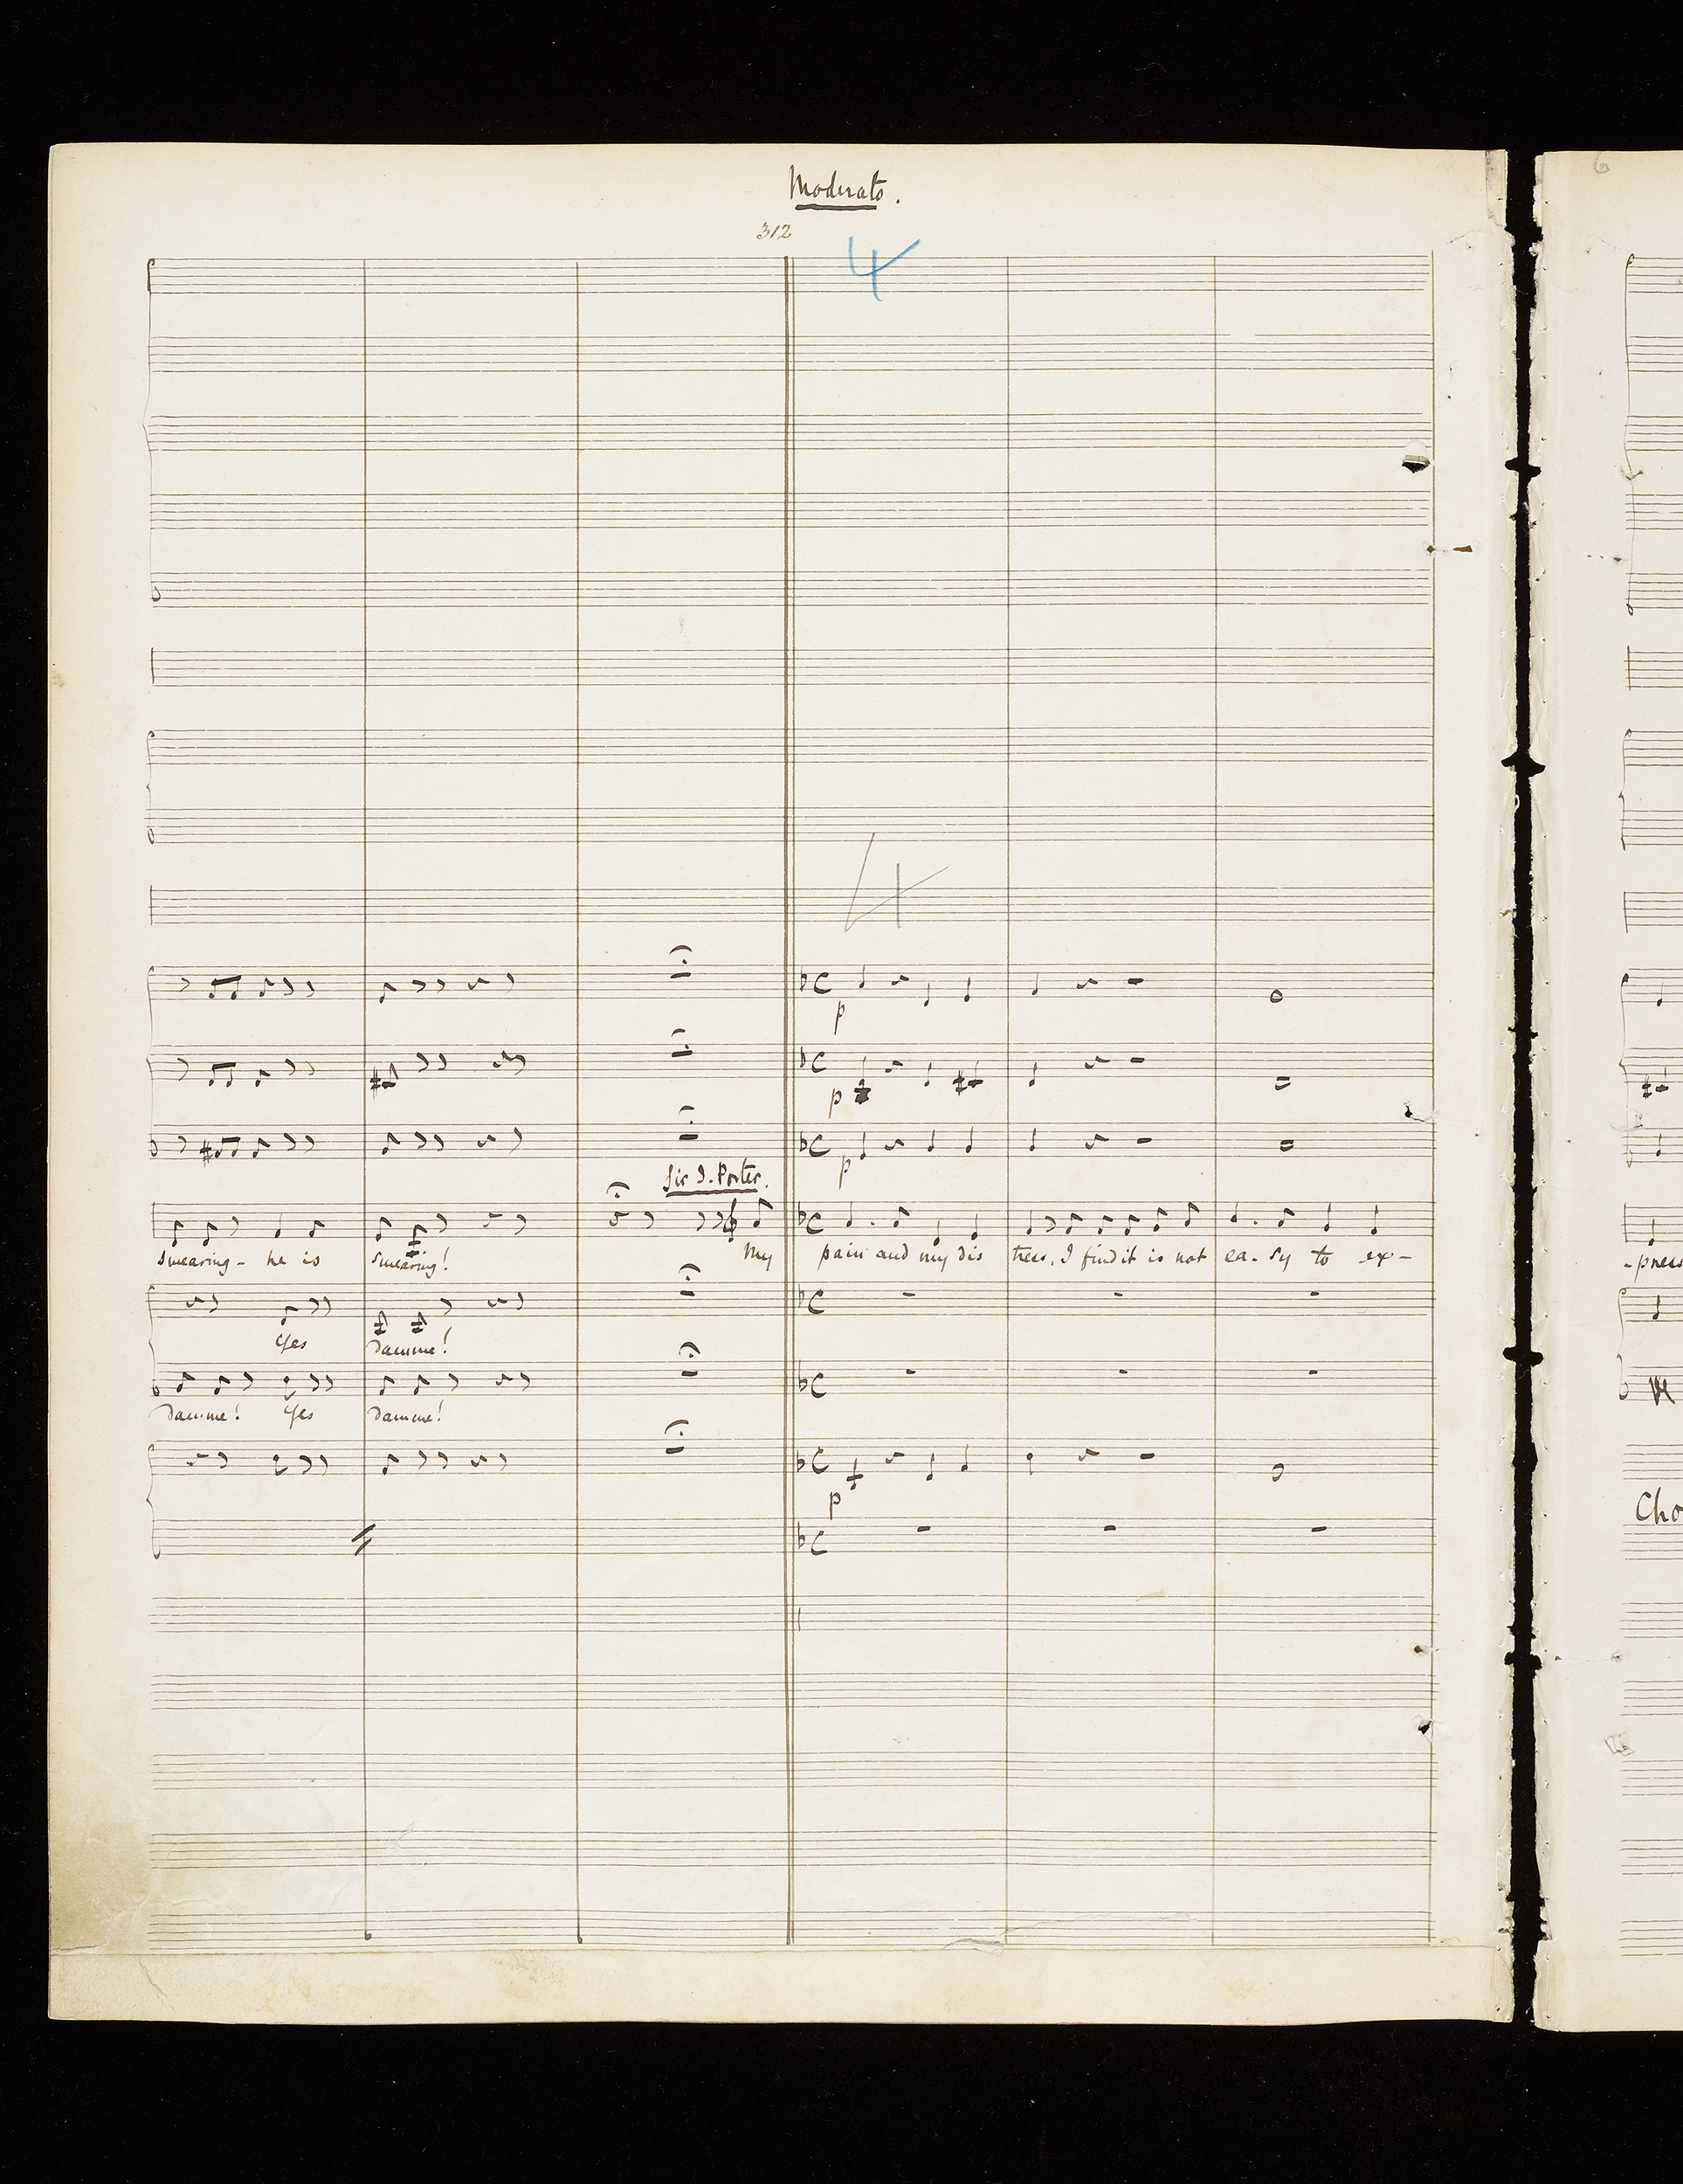 Moderato.
312
4
4
p
p
p
Sir J. Porter.
swearing - he is swearing! My pain and my dis tress, I find it is not ea - sy to ex -
- press
Yes Damme!
Damme! Yes Damme!
p
Cho